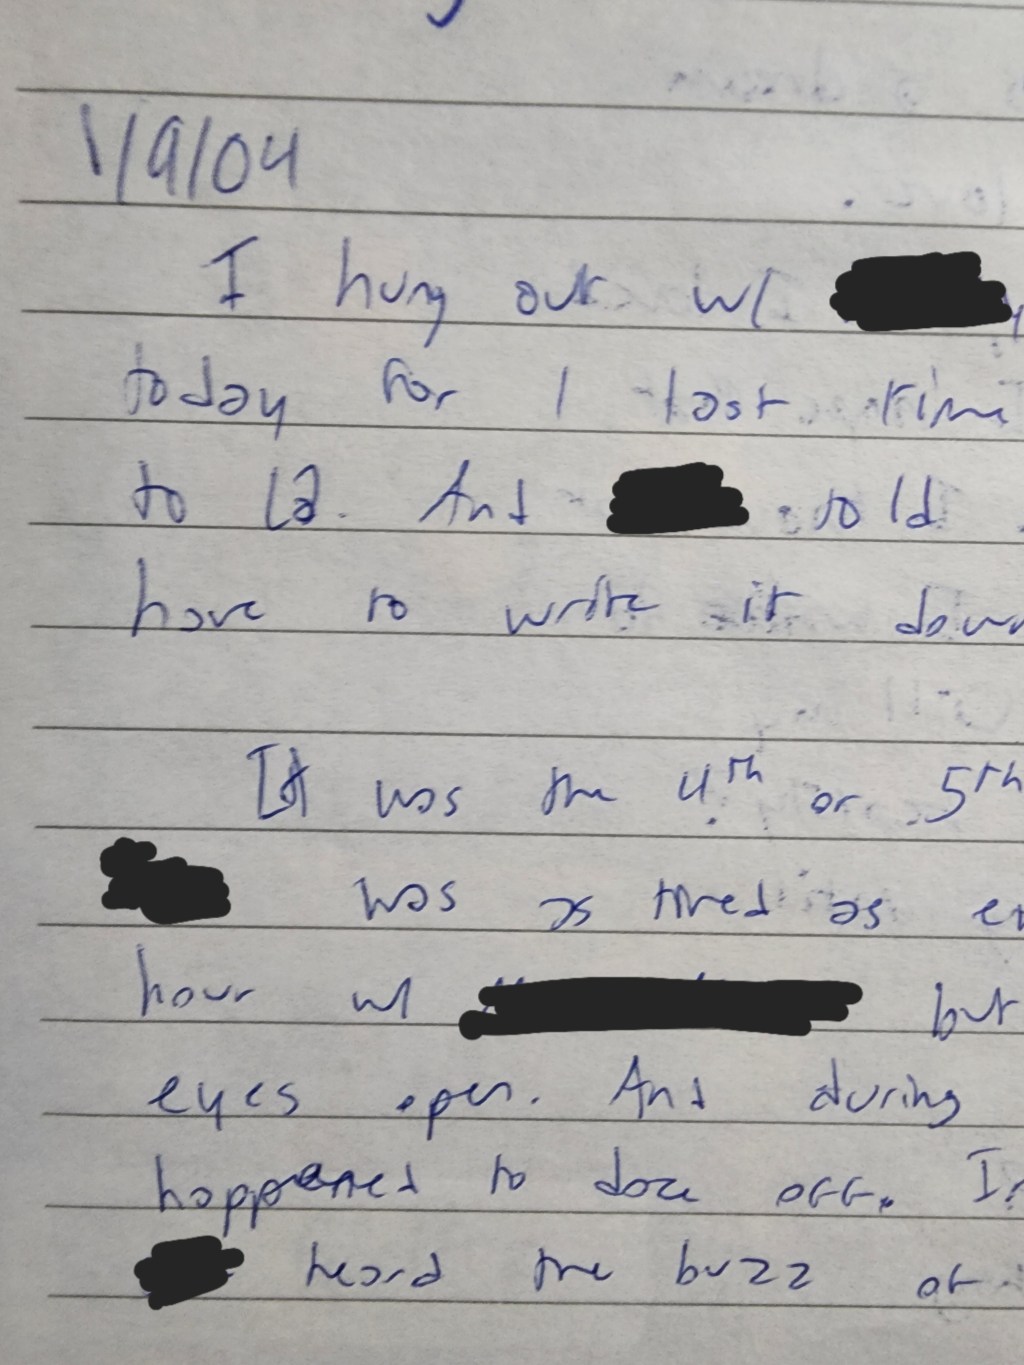 1/9/04
I hung out w/
today for 1 last time
to LA. And told
have to write it down
It was the 4th or 5th
was as tired as
hour w/ but
eyes open. And during
happened to doze off.
heard the buzz of